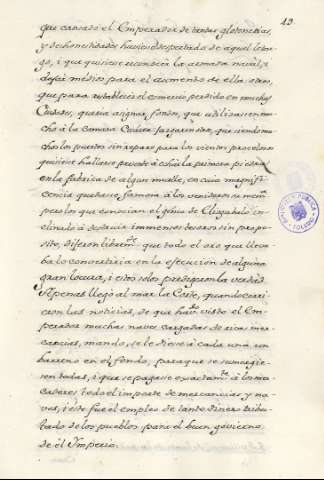 13.
que cansado el Emperador de tantas glotonerias,
y deshonestidades huviese despertado de aquel letar-
go, i que quisiese reconocer la armada naval, i
dejar medios para el aumento de ella otros,
que para restablecer el comercio perdido en muchas
Ciudades, queria asignar, fondos, que utilizasen mu-
cho à la Camara Cesárea
los puertos sin reparo para los vientos procelosos
quisiese hallarse presente à echàr la primera piedra
en la fabrica de algun muelle, en cuia magnifi-
cencia quedase famosa à los venideros su memª
pero los que conocian el génio de Eliogabalo in-
clinado à destruir immensos tesoros sin propo-
sito, dijeron librem.te que todo el oro que lleva-
ba lo convertiria en la ejecucion de alguna
gran locura, i estos solos predigeron la verdad.
Apenas llegó al mar la Corte, quando corri-
eron las noticias, de que haviendo visto el Em-
perador muchas naves cargadas de ricas mer-
cancias, mandó, se le diese à cada una un
barreno en el fondo, para que se sumergie-
sen todas, i que se pagase exactam.te à los mer-
caderes todo el importe de mercancias y na-
ves, i este fue el empleo de tanto dinero tribu-
tado de los pueblos para el buen govierno
de el Imperio.
TOLEDO